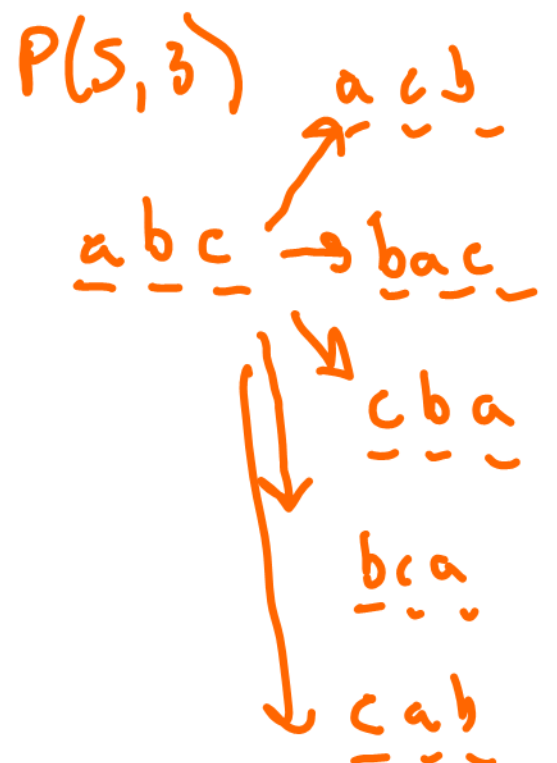 P(5,3)
a c b
a b c
b a c
c b a
b c a
c a b